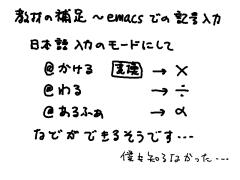 教材の補足 ～emacsでの記号入力
日本語入力のモードにして
@かける 変換 → ×
@わる → ÷
@あるふぁ → α
などができるそうです…
僕も知らなかった…